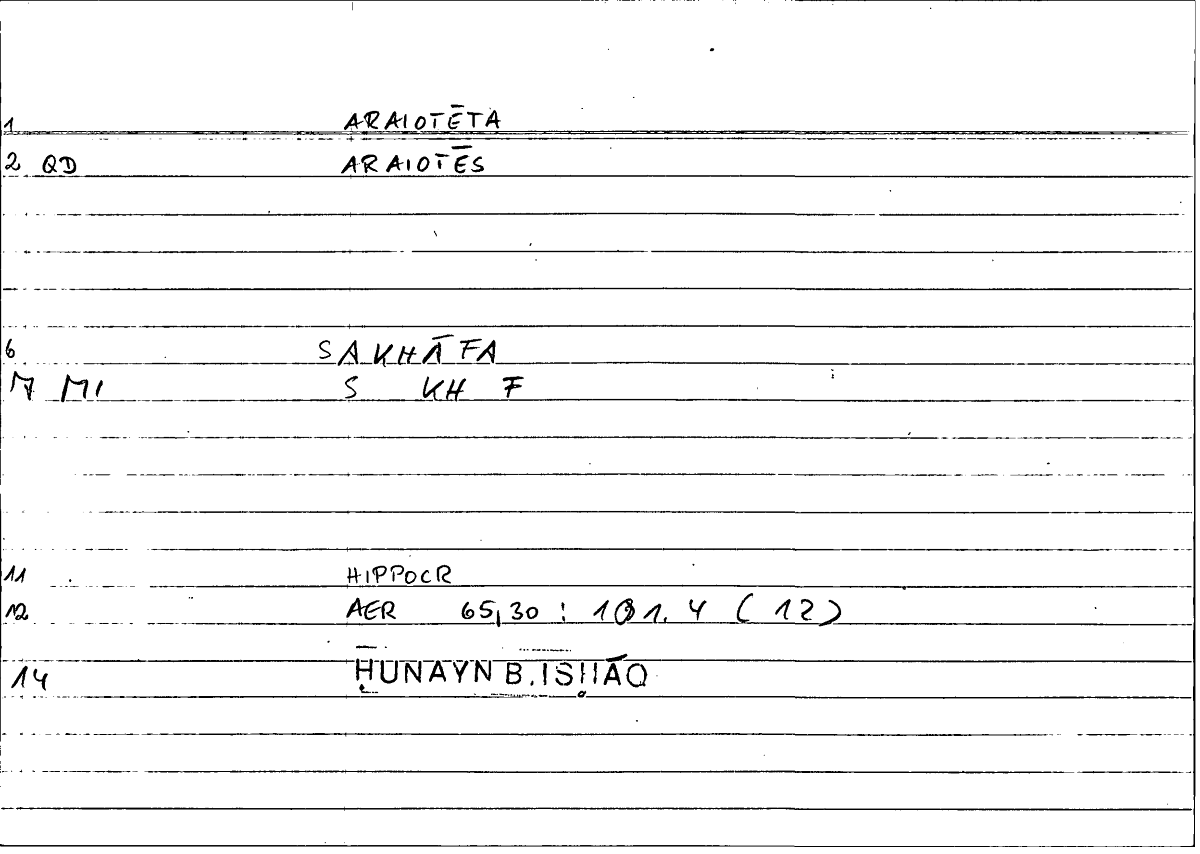 1 ARAIOTĒTA
2 QD ARAIOTĒS
6 SAKHĀFA
M MI S KH F
11 HIPPOCR
12 AER 65,30 : 101.4 (12)
14 ḤUNAYN B. ISḤĀQ